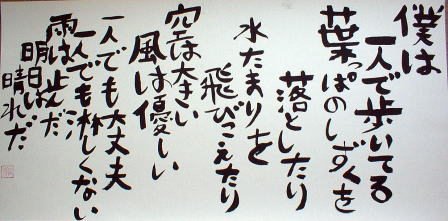 僕は
一人で歩いてる
葉っぱのしずくを
落としたり
水たまりを
飛びこえたり
空は大きい
風は優しい
一人でも大丈夫
一人でも淋しくない
雨は止んだ
明日は
晴れだ